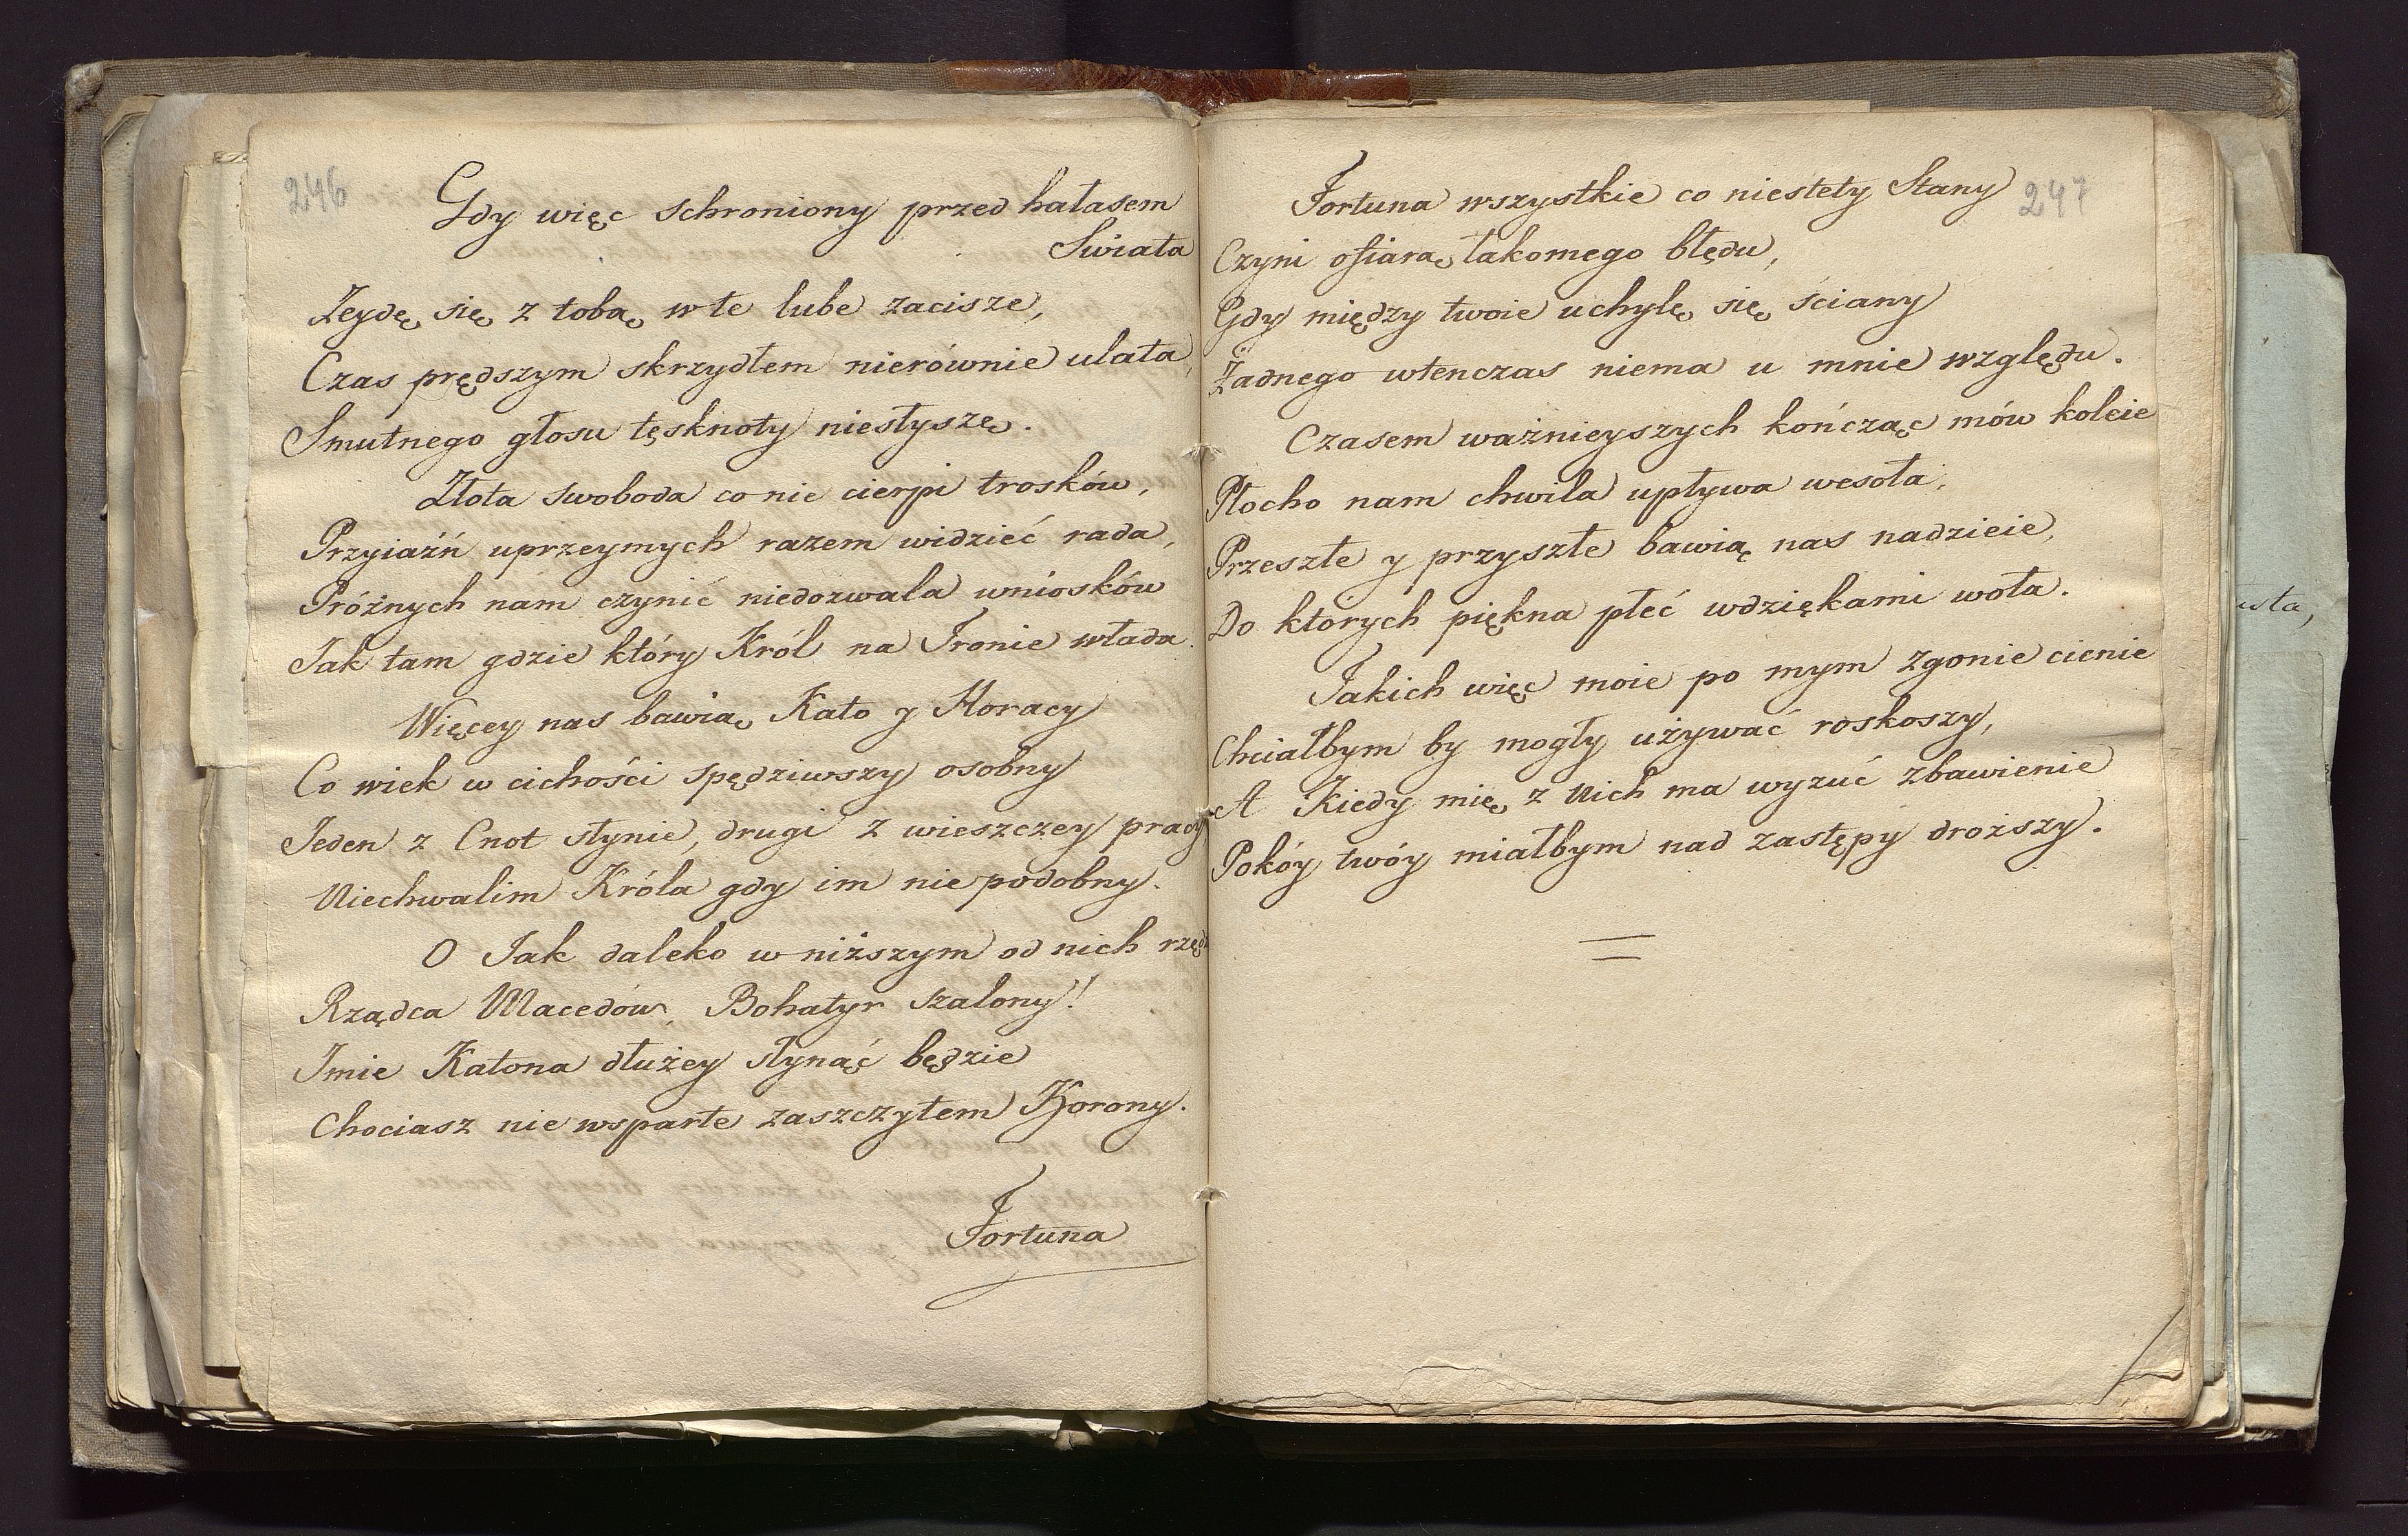 246
Gdy więc schroniony przed hałasem
Swiata
Zeydę się z tobą w te lube zacisze,
Czas prędszym skrzydłem nierównie ulata,
Smutnego głosu tęsknoty niesłyszę.
Złota swoboda co nie cierpi trosków,
Przyiaźń uprzeymych razem widzieć rada,
Próżnych nam czynić niedozwala wniosków
Jak tam gdzie który Król na Tronie włada.
Więcey nas bawią Kato y Horacy
Co wiek w cichości spędziwszy osobny
Jeden z Cnot słynie, drugi z wieszczey pracy
Niechwalim Króla gdy im nie podobny.
O Jak daleko w niższym od nich rzęd
Rządca Macedów, Bohatyr szalony!
Imie Katona dłużey słynąć będzie
Chociasz nie wsparte zaszczytem Korony.
Fortuna
247
Fortuna wszystkie co niestety Stany
Czyni ofiarą łakomego błędu,
Gdy między twoie uchylę się ściany
Żadnego wtenczas niema u mnie względu.
Czasem ważnieyszych kończąc mów koleie
Płocho nam chwila upływa wesoła,
Przeszłe y przyszłe bawią nas nadzieie,
Do których piękna płeć wdziękami woła.
Takich więc moie po mym zgonie cienie
Chciałbym by mogły używać roskoszy,
A Kiedy mię z Nich ma wyzuć zbawienie
Pokóy twóy miałbym nad zastępy droższy.